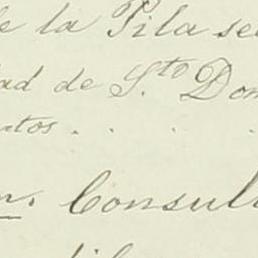 de la Pila se
dad de S.to Dom
ntos . . .
n. Consul